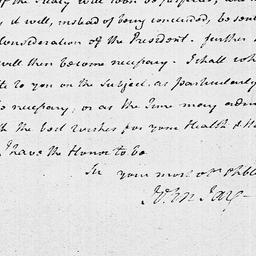 of the Treaty will soon be
it will, instead of being concluded, be sent
consideration of the President. further
will then become necessary. I shall
to you on the Subject as particularly
necessary, or as the Time may
the best wishes for your Health &
I have the Honor to be
Sir your most
John Jay